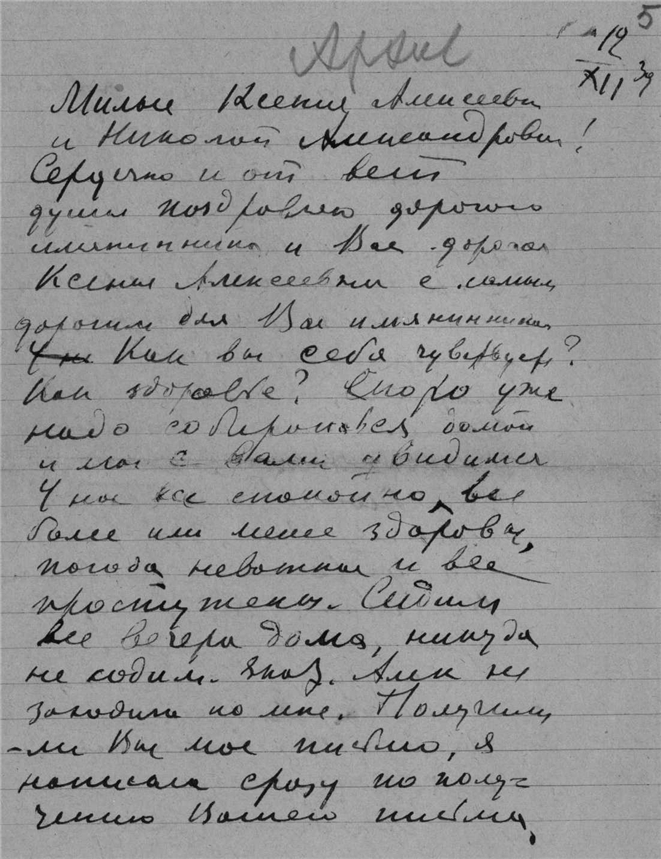 5
Архив
12/XII 39
Милые Ксения Алексеевна
и Николай Александрович!
Сердечно и от всей
души поздравляю дорогого
имянинника и Вас дорогая
Ксения Алексеевна с самым
дорогим для Вас имянинником
Как вы себя чувствуете?
Как здоровье? Скоро уже
надо собираться домой
и мы с Вами увидимся
У нас все спокойно, все
более или менее здоровы,
погода неважная и все
простужены. Сидим
все вечера дома, никуда
не ходим. Алек не
заходила ко мне. Получили
-ли Вы мое письмо, я
написала сразу по полу=
чению Вашего письма,